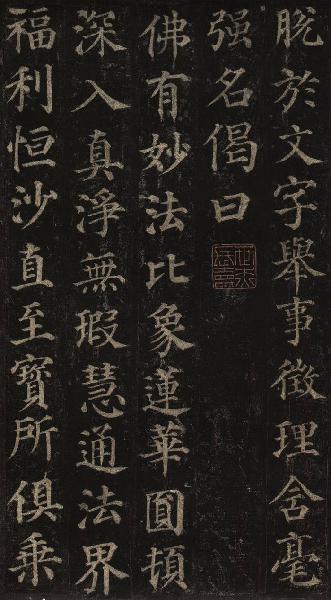 脱於文字舉事徵理含毫
强名偈曰
佛有妙法比象蓮華圓頓
深入真淨無瑕慧通法界
福利恒沙直至寶所俱乘